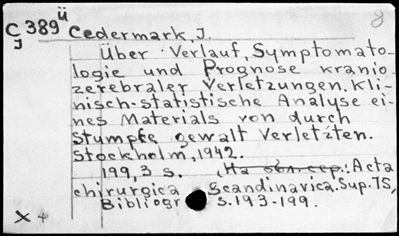 C 389 ü Cedermark, J.
J
Über Verlauf, Symptomato-
logie und Prognose kranio-
zerebraler Verletzungen. Kli-
nisch-statistische Analyse ei-
nes Materials von durch
Stumpfe gewalt Verletzten.
Stockholm, 1942.
199, 3 s. На обл. сер.: Acta
chirurgica Scandinavica. Sup. 75,
Bibliogr s. 193-199.
X +